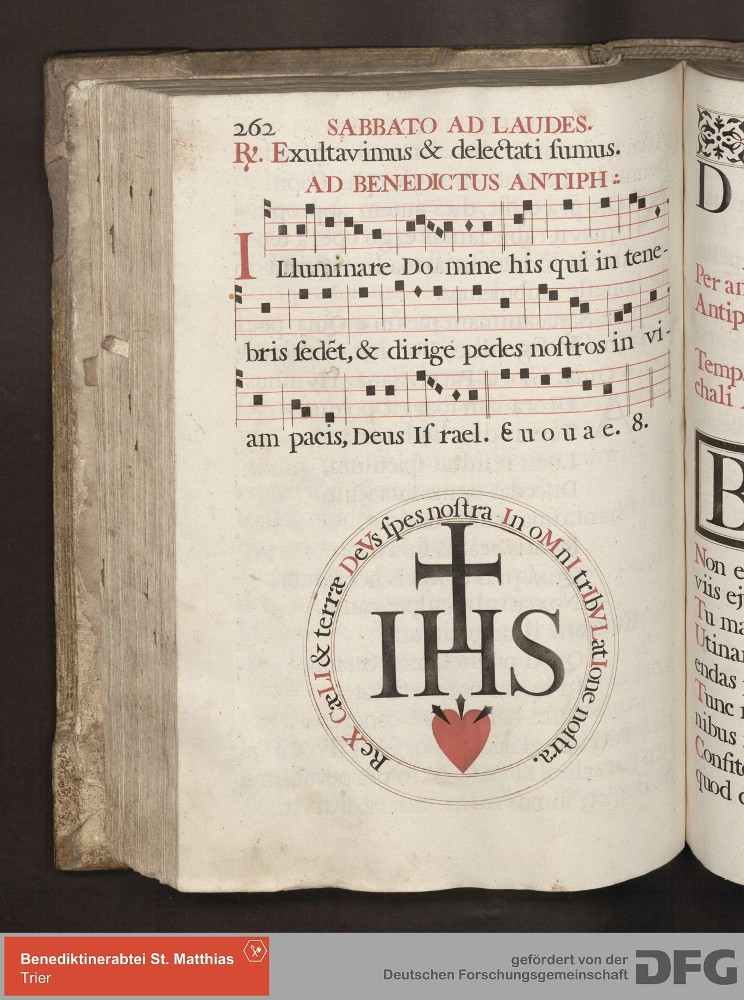 262 SABBATO AD LAUDES.
℟. Exultavimus & delectati ſumus.
AD BENEDICTUS ANTIPH:
ILluminare Do mine his qui in tene-
bris ſedēt, & dirige pedes noſtros in vi-
am pacis, Deus Iſ rael. E u o u a e. 8.
ReX CæLI & terræ DeVs ſpes noſtra In oMnI trIbVLatIone noſtra.
IHS
D
Per an
Antip
Temp
chali
B
Non e
viis ej
Tu ma
Utinam
endas
Tunc
nibus
Confite
quod
Benediktinerabtei St. Matthias
Trier
gefördert von der
Deutschen Forschungsgemeinschaft
DFG